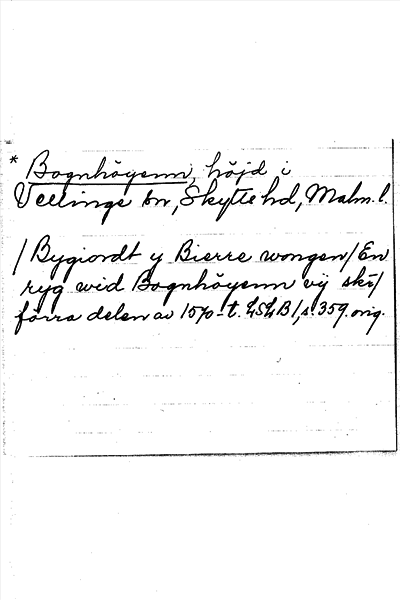 * Bognhöyenn, höjd i
Vellinge sn, Skytts hd, Malm. l.
/Bygiordt y Bierre wongen/ En
ryg wid Bognhöyenn vij skr/
förra delen av 1570-t. LSLB 1, s. 359. orig.